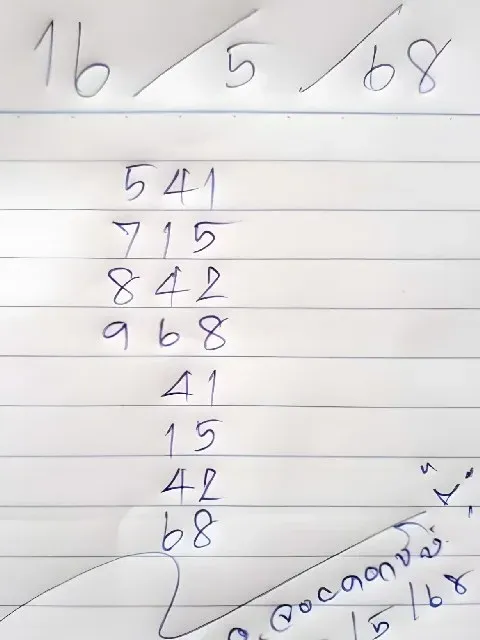 16/5/68
541
715
842
968
41
15
42
68
/5/68